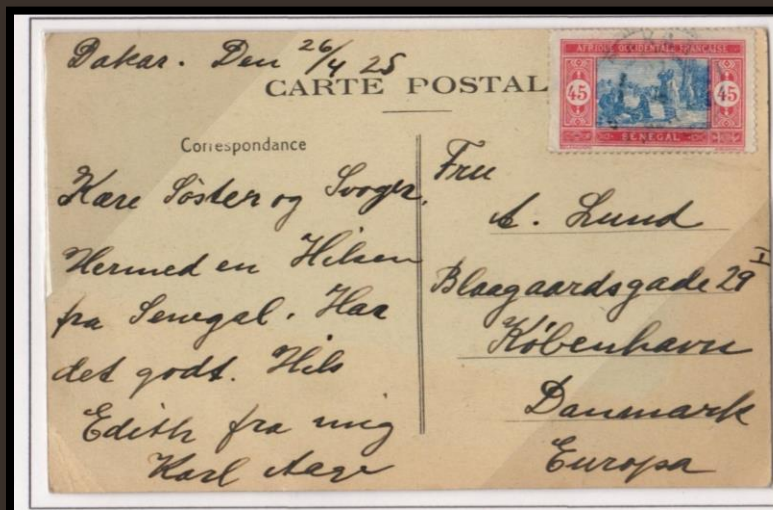 Dakar. Den 26/4 25
CARTE POSTAL
AFRIQUE OCCIDENTALE FRANÇAISE
45 45
SENEGAL
Correspondance
Kære Söster og Svoger.
Hermed en Hilsen
fra Senegal. Har
det godt. Hils
Edith fra mig
Karl Aage
Fru
A. Lund
Blaagaardsgade 29 I
Köbenhavn
Danmark
Europa